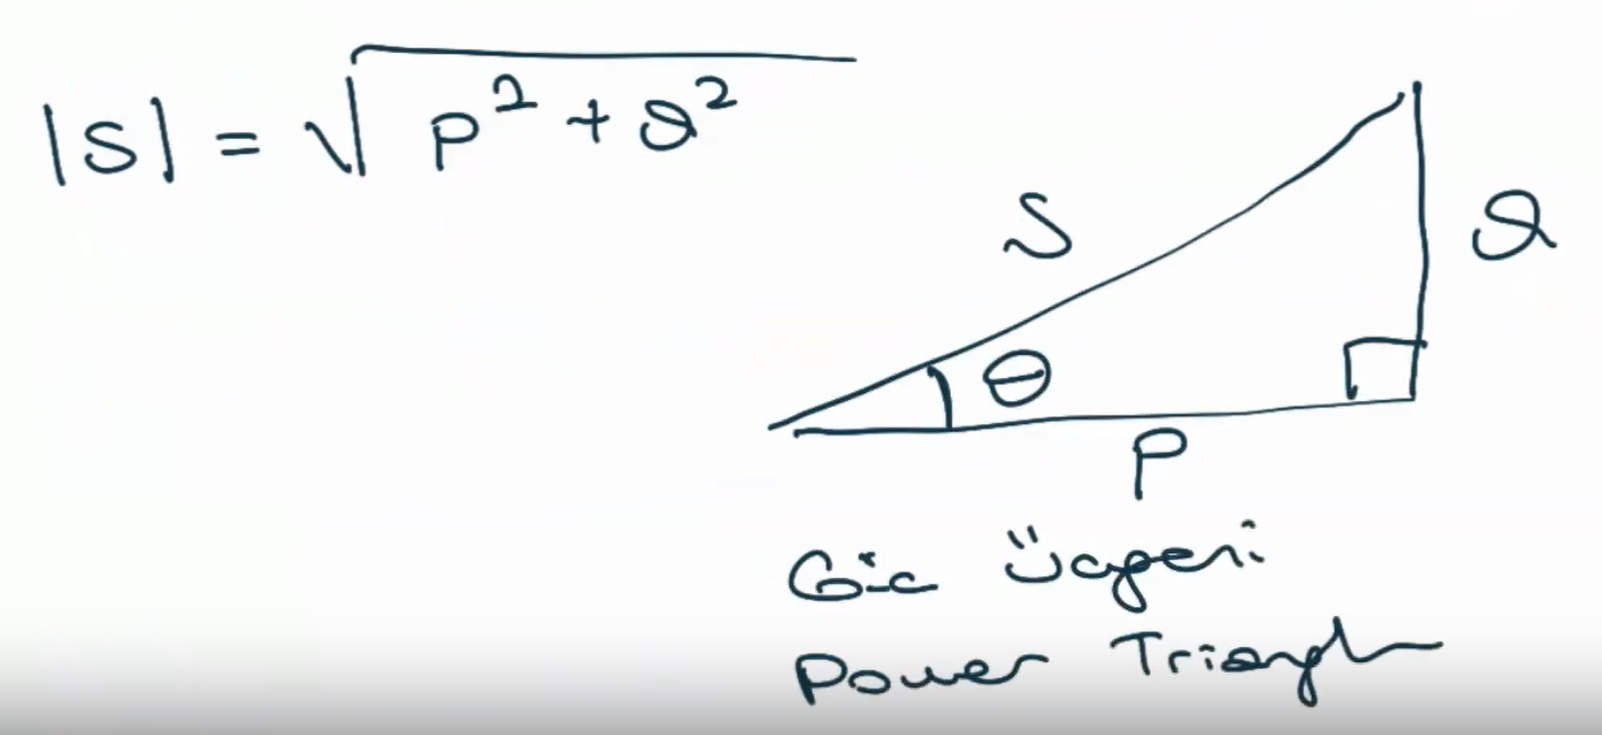 |S| = √P² + Q²
S
Q
θ
P
Güc Üçgeni
Power Triangle